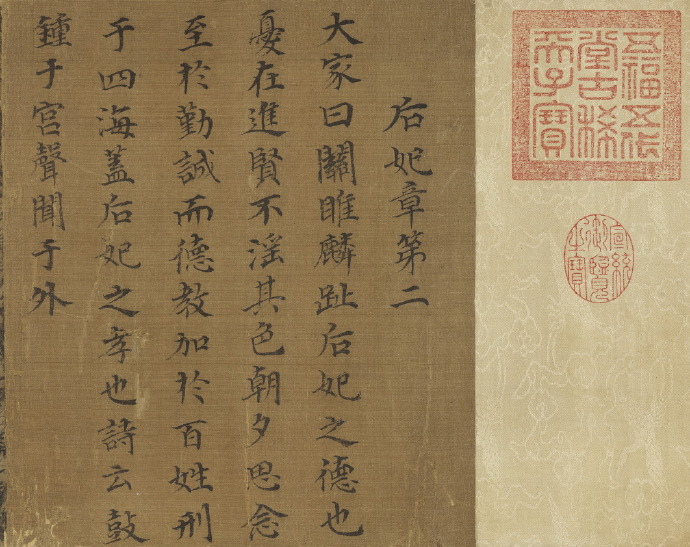 五福五代
堂古稀
天子寶
宣統
御覽
之寶
后妃章第二
大家曰關雎麟趾后妃之德也
憂在進賢不淫其色朝夕思念
至於勤誠而德教加於百姓刑
于四海蓋后妃之孝也詩云鼓
鍾于宮聲聞于外